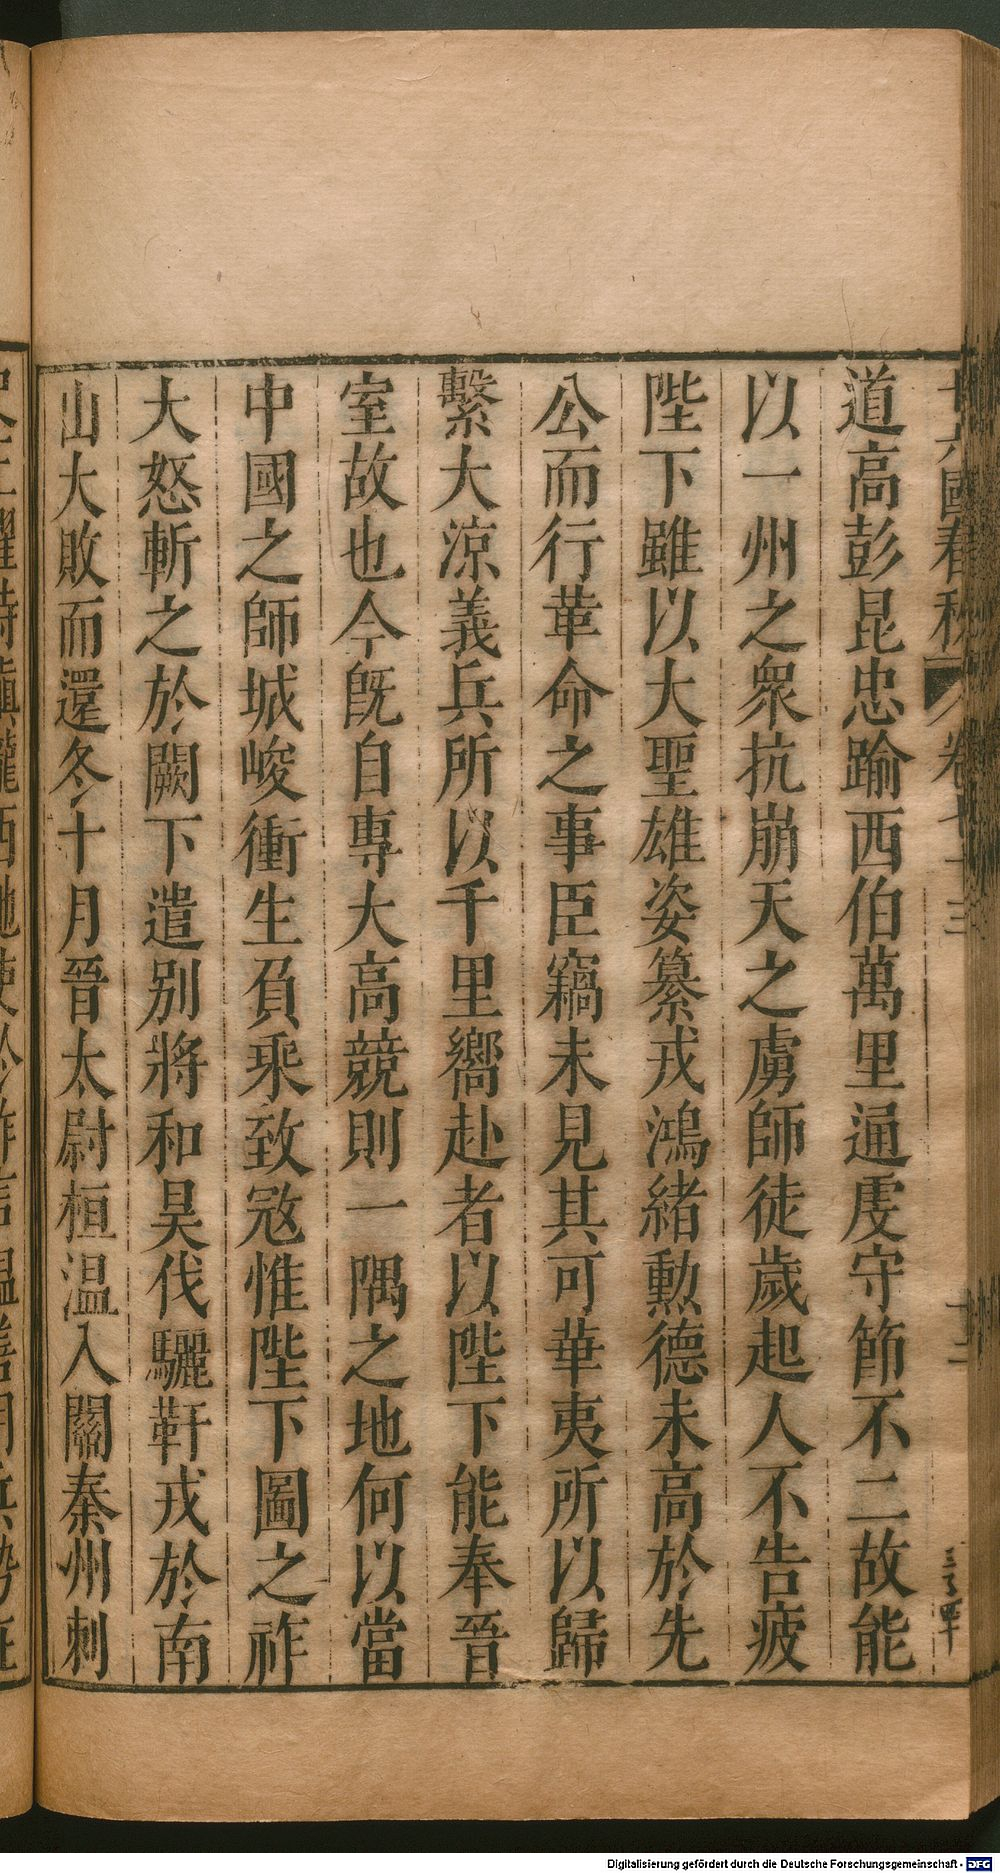 十六國春秋 卷七十三 十二
道高彭昆忠踰西伯萬里通虔守節不二故能
以一州之衆抗崩天之虜師徒歲起人不告疲
陛下雖以大聖雄姿纂戎鴻緒勲德未高於先
公而行革命之事臣竊未見其可華夷所以歸
繫大涼義兵所以千里嚮赴者以陛下能奉晉
室故也今旣自專大高競則一隅之地何以當
中國之師城峻衝生負乘致寇惟陛下圖之祚
大怒斬之於闕下遣别將和昊伐驪靬戎於南
山大敗而還冬十月晉太尉桓温入關秦州刺
Digitalisierung gefördert durch die Deutsche Forschungsgemeinschaft - DFG